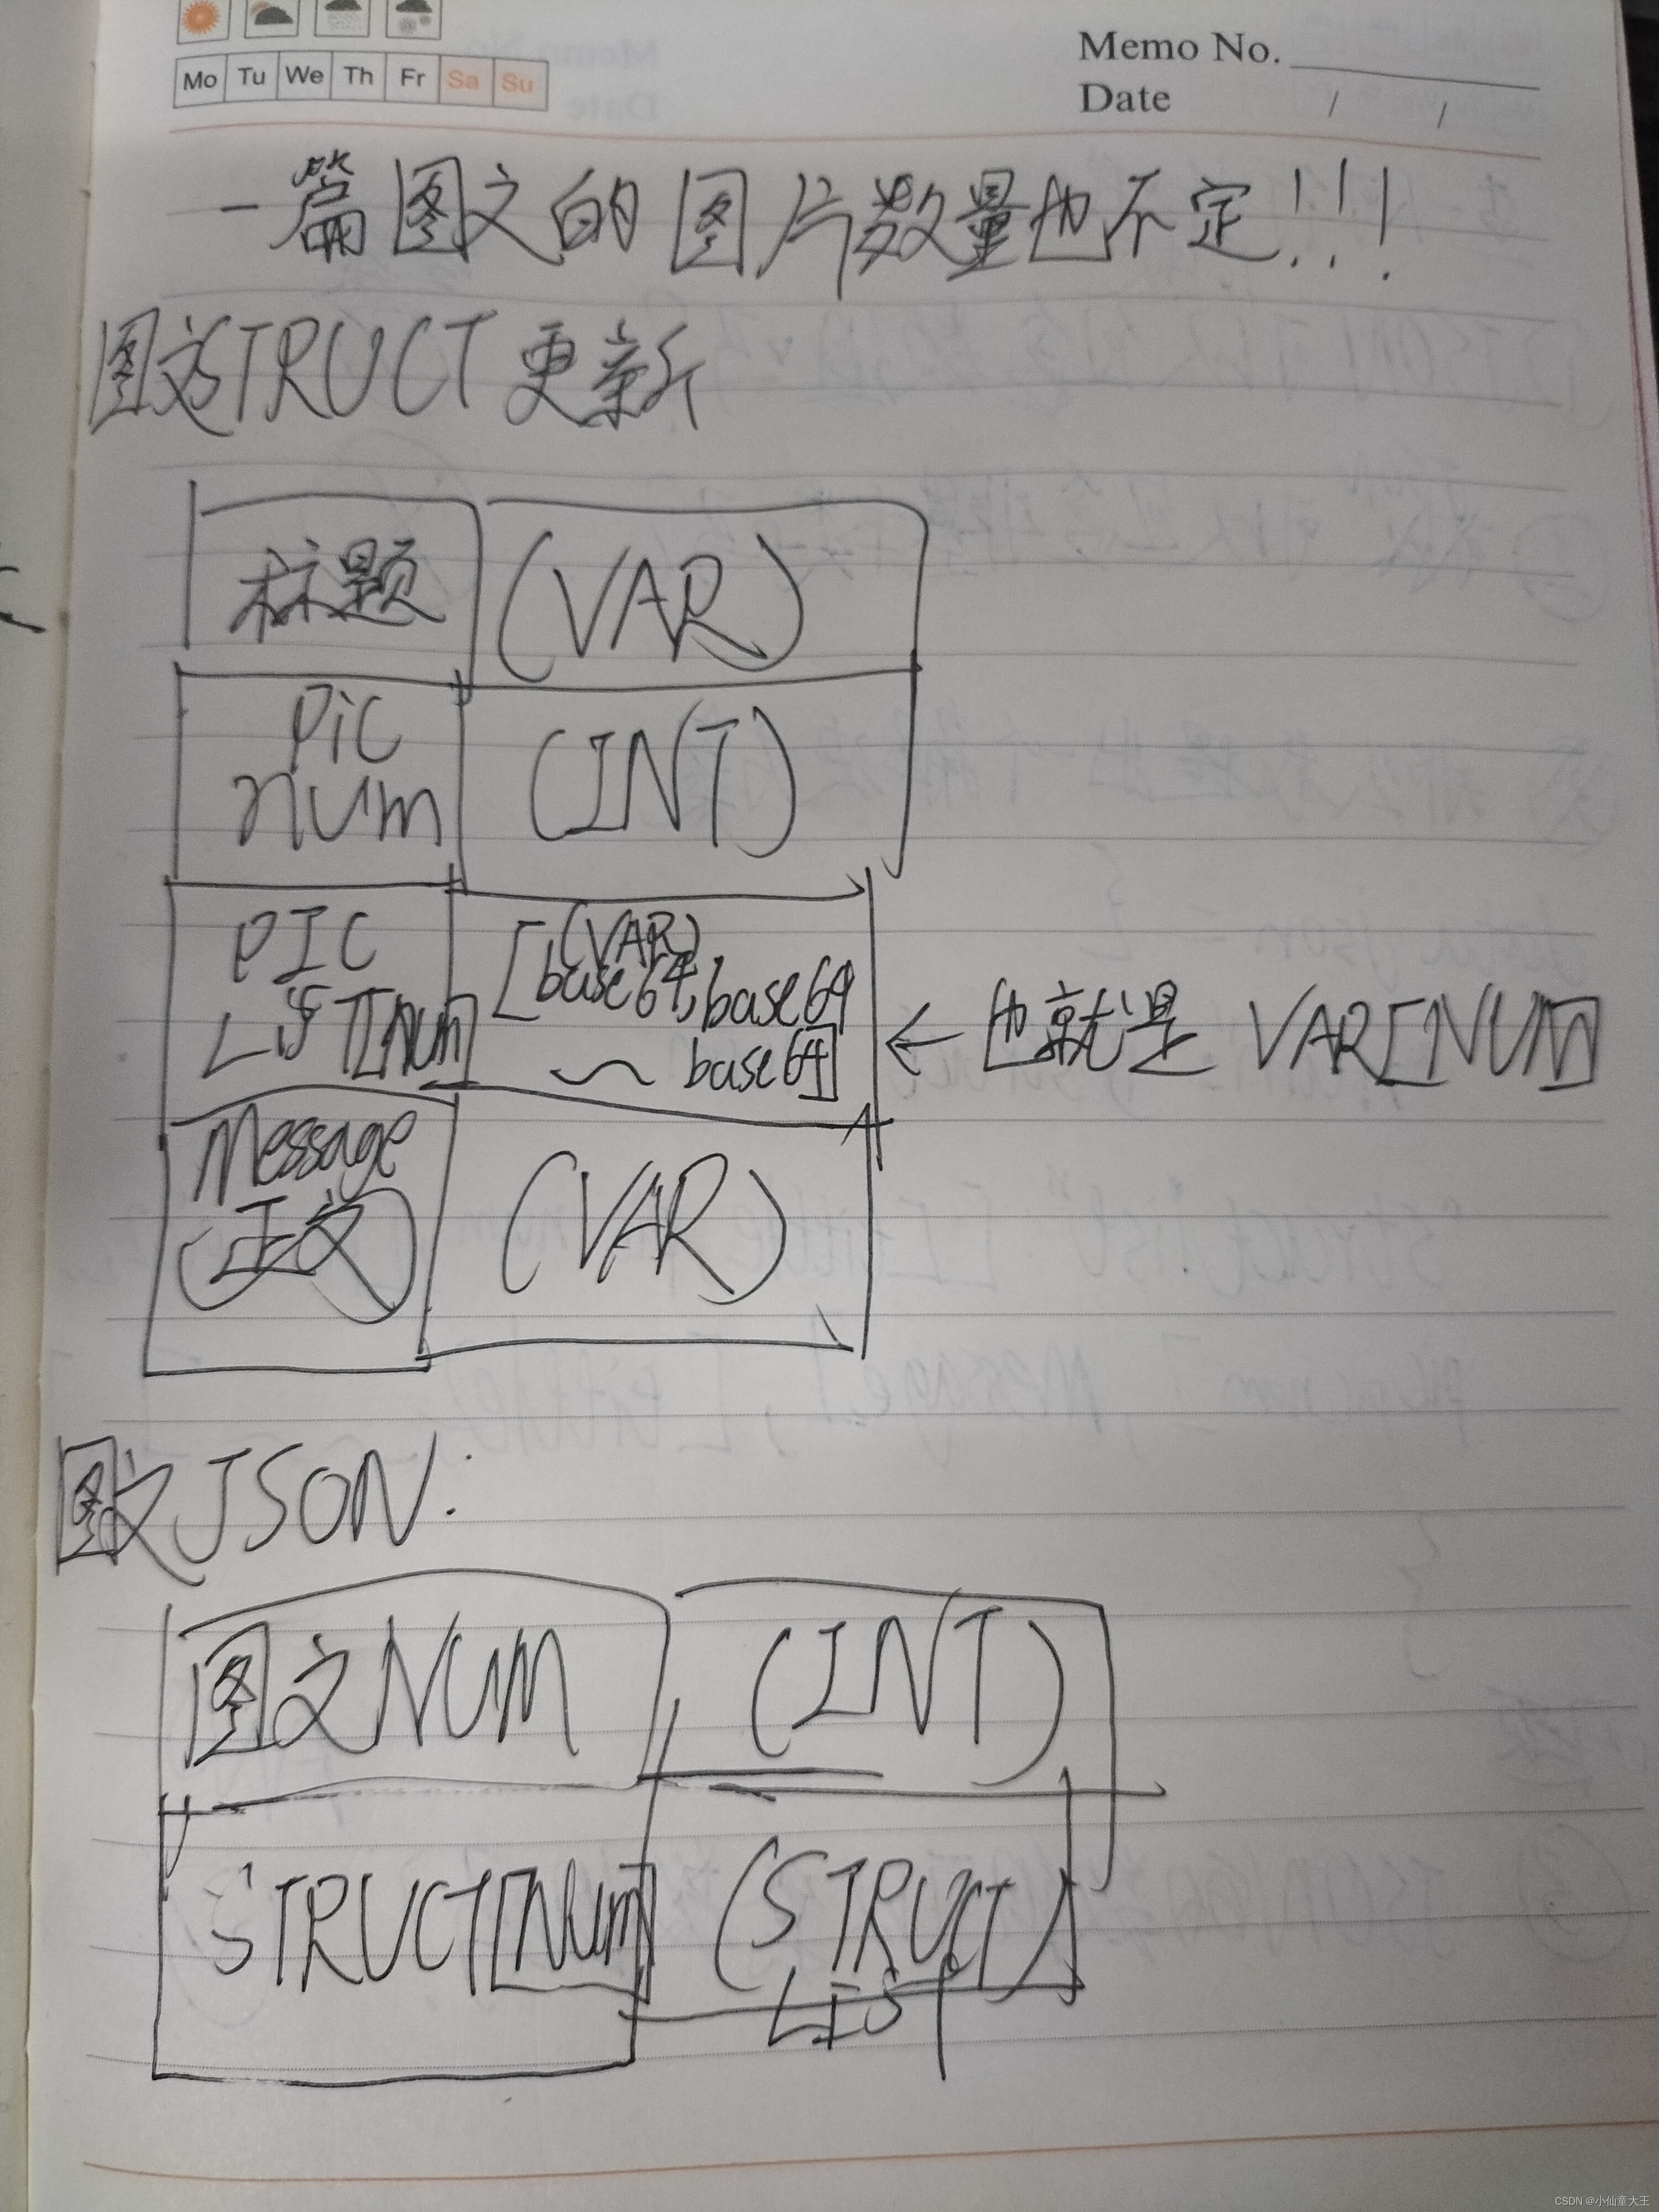 Mo Tu We Th Fr Sa Su
Memo No.
Date / /
一篇图文的图片数量也不定!!!
图文STRUCT更新
标题 (VAR)
Pic num (INT)
PIC LIST[num] [(VAR) base64, base64 ~ base64] ← 也就是 VAR[NUM]
Message (正文) (VAR)
图文JSON:
图文NUM (INT)
STRUCT[Num] (STRUCT) LIST
CSDN @小仙童大王